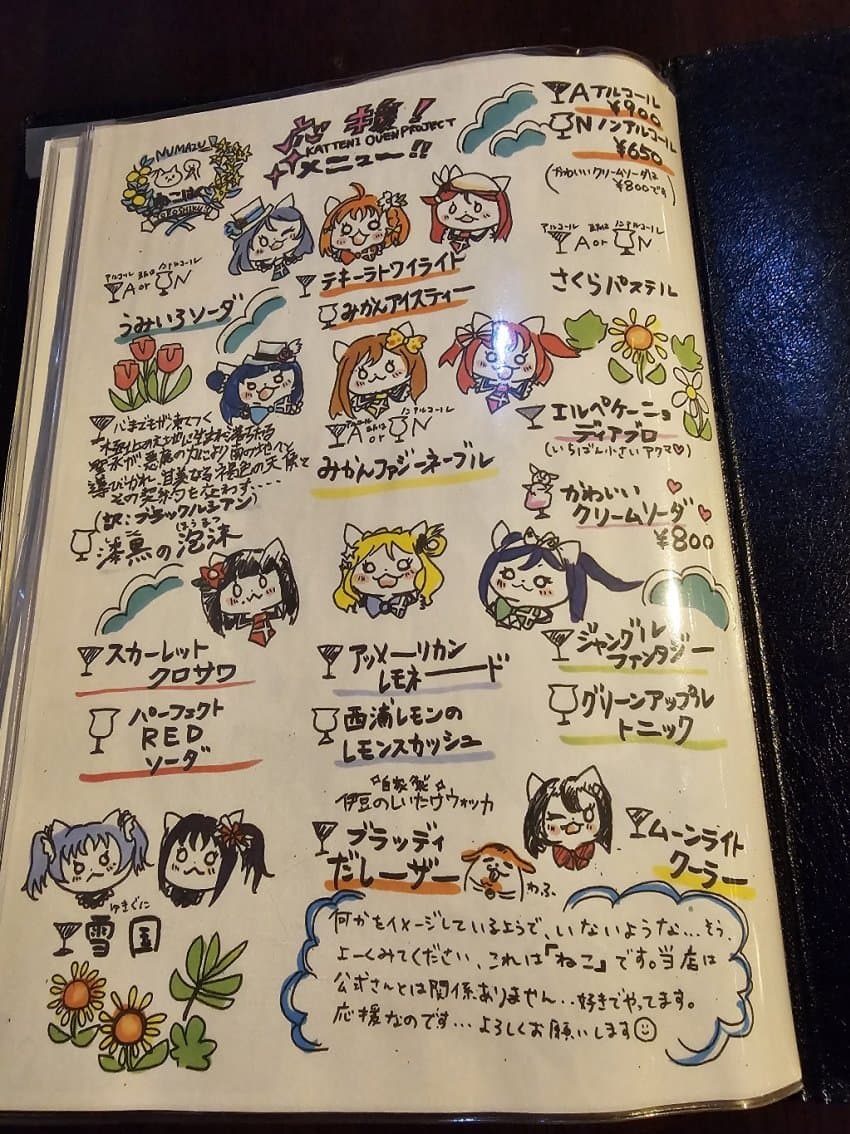 NUMAZU
ねこはく
YOROSHIKU!!
応援!
KATTENI OUEN PROJECT
メニュー!!
Aアルコール
¥900
Nノンアルコール
¥650
(かわいいクリームソーダは
¥800です)
アルコール または ノンアルコール
A or N
うみいろソーダ
テキーラトワイライト
みかんアイスティー
アルコール または ノンアルコール
A or N
さくらパステル
バまでもが凍てつく
極北の土地に生まれ落ちたる
堕天が悪魔の力により南の地へと
導びかれ、甘美なる褐色の天使と
その契約を交わす・・・・
(訳:ブラックルシアン)
ほうまつ
漆黒の泡沫
アルコール または ノンアルコール
A or N
みかんファジーネーブル
エルペケーニョ
ディアブロ
(いちばん小さいアクマ♡)
かわいい
クリームソーダ
¥800
スカーレット
クロサワ
パーフェクト
RED
ソーダ
アッメーリカン
レモネード
西浦レモンの
レモンスカッシュ
ジャングル
ファンタジー
グリーンアップル
トニック
自家製
伊豆のしいたけウォッカ
ブラッディ
だレーザー
わふ。
ムーンライト
クーラー
ゆきぐに
雪国
何かをイメージしているようで、いないような...そう、
よーくみてください、これは「ねこ」です。当店は
公式さんとは関係ありません..好きでやってます。
応援なのです...よろしくお願いします☺